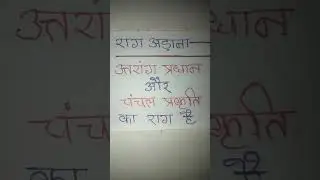 राग अड़ाना—
उत्तरांग प्रधान
और
चंचल प्रकृति
का राग है